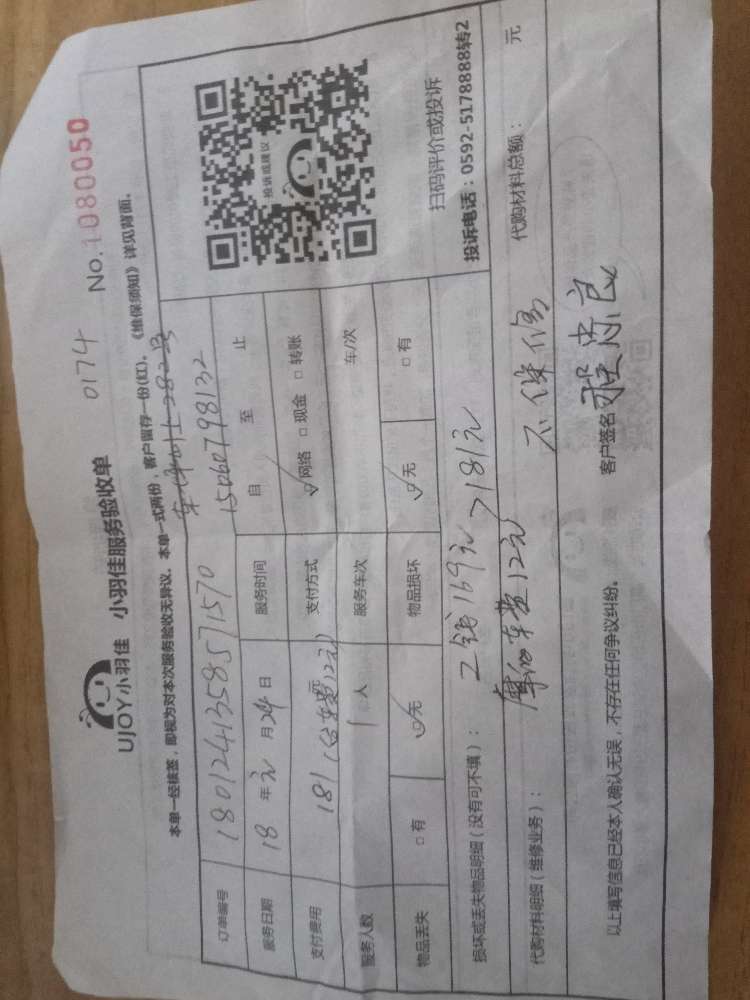 UJOY小羽佳 小羽佳服务验收单
0174
No.1080050
本单一经核签，即视为对本次服务验收无异议。本单一式两份，客户留存一份(红)。《维保须知》详见背面。
订单编号 1801241358571570
15060798132
服务日期 18年 月24日 服务时间 自 至 止
支付费用 181（含车费12元）元 支付方式 ☑网络 □现金 □转账
服务人数 1人 服务车次 车/次
物品丢失 □有 ☑无 物品损坏 ☑无 □有
投诉或建议
扫码评价或投诉
投诉电话：0592-5178888转2
损坏或丢失物品明细（没有可不填）： 工钱169元 >181元
摩的车费12元
代购材料明细（维修业务）： 不保修 代购材料总额： 元
以上填写信息已经本人确认无误，不存在任何争议纠纷。 客户签名